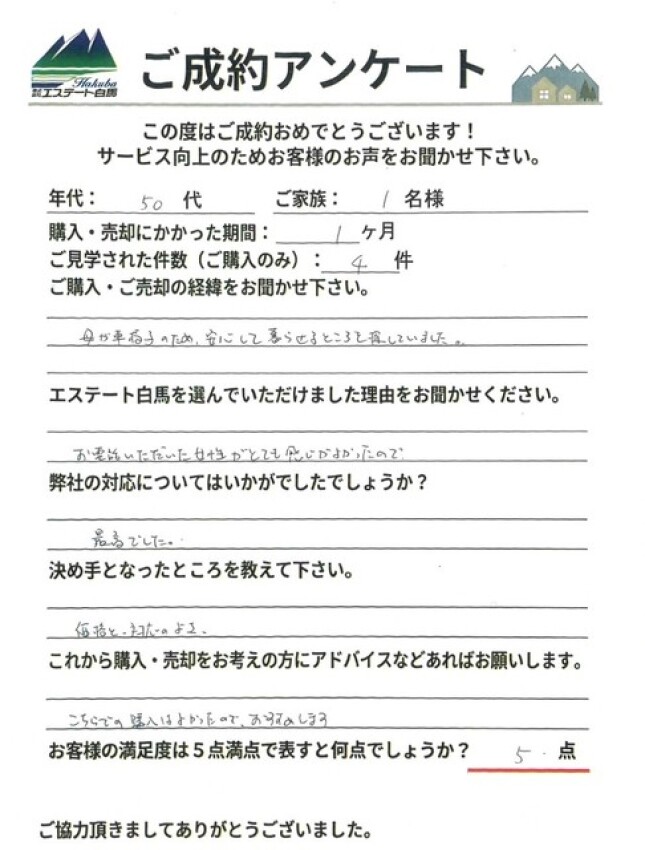 Hakuba
株式会社エステート白馬
ご成約アンケート
この度はご成約おめでとうございます！
サービス向上のためお客様のお声をお聞かせ下さい。
年代： 50 代 ご家族： 1 名様
購入・売却にかかった期間： 1 ヶ月
ご見学された件数（ご購入のみ）： 4 件
ご購入・ご売却の経緯をお聞かせ下さい。
母が車椅子のため、安心して暮らせるところを探していました。
エステート白馬を選んでいただけました理由をお聞かせください。
お電話いただいた女性がとても感じがよかったので
弊社の対応についてはいかがでしたでしょうか？
最高でした。
決め手となったところを教えて下さい。
価格と、対応のよさ。
これから購入・売却をお考えの方にアドバイスなどあればお願いします。
こちらでの購入はよかったので、おすすめします
お客様の満足度は５点満点で表すと何点でしょうか？ 5 点
ご協力頂きましてありがとうございました。